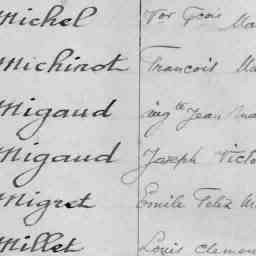 Michel Vor Fcois Ma
Michirot Francois Ma
Migaud Jean Ma
Migaud Joseph Victo
Migret Emile Felix M
Millet Louis Clemen